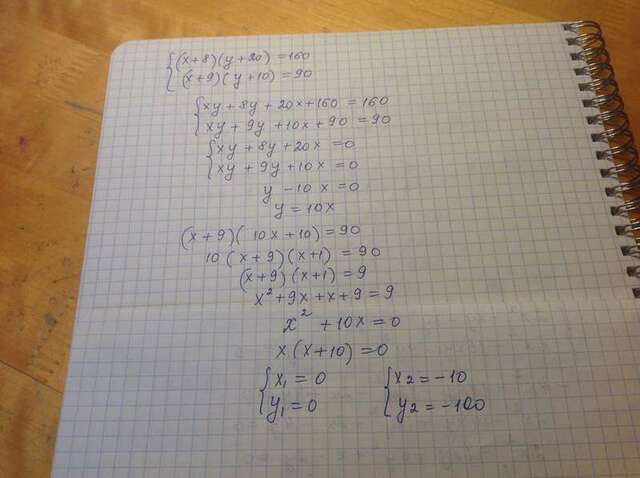 {(x+8)(y+20)=160
(x+9)(y+10)=90
{xy+8y+20x+160=160
xy+9y+10x+90=90
{xy+8y+20x=0
xy+9y+10x=0
y-10x=0
y=10x
(x+9)(10x+10)=90
10(x+9)(x+1)=90
(x+9)(x+1)=9
x²+9x+x+9=9
x²+10x=0
x(x+10)=0
{x₁=0 {x2=-10
y₁=0 y2=-100